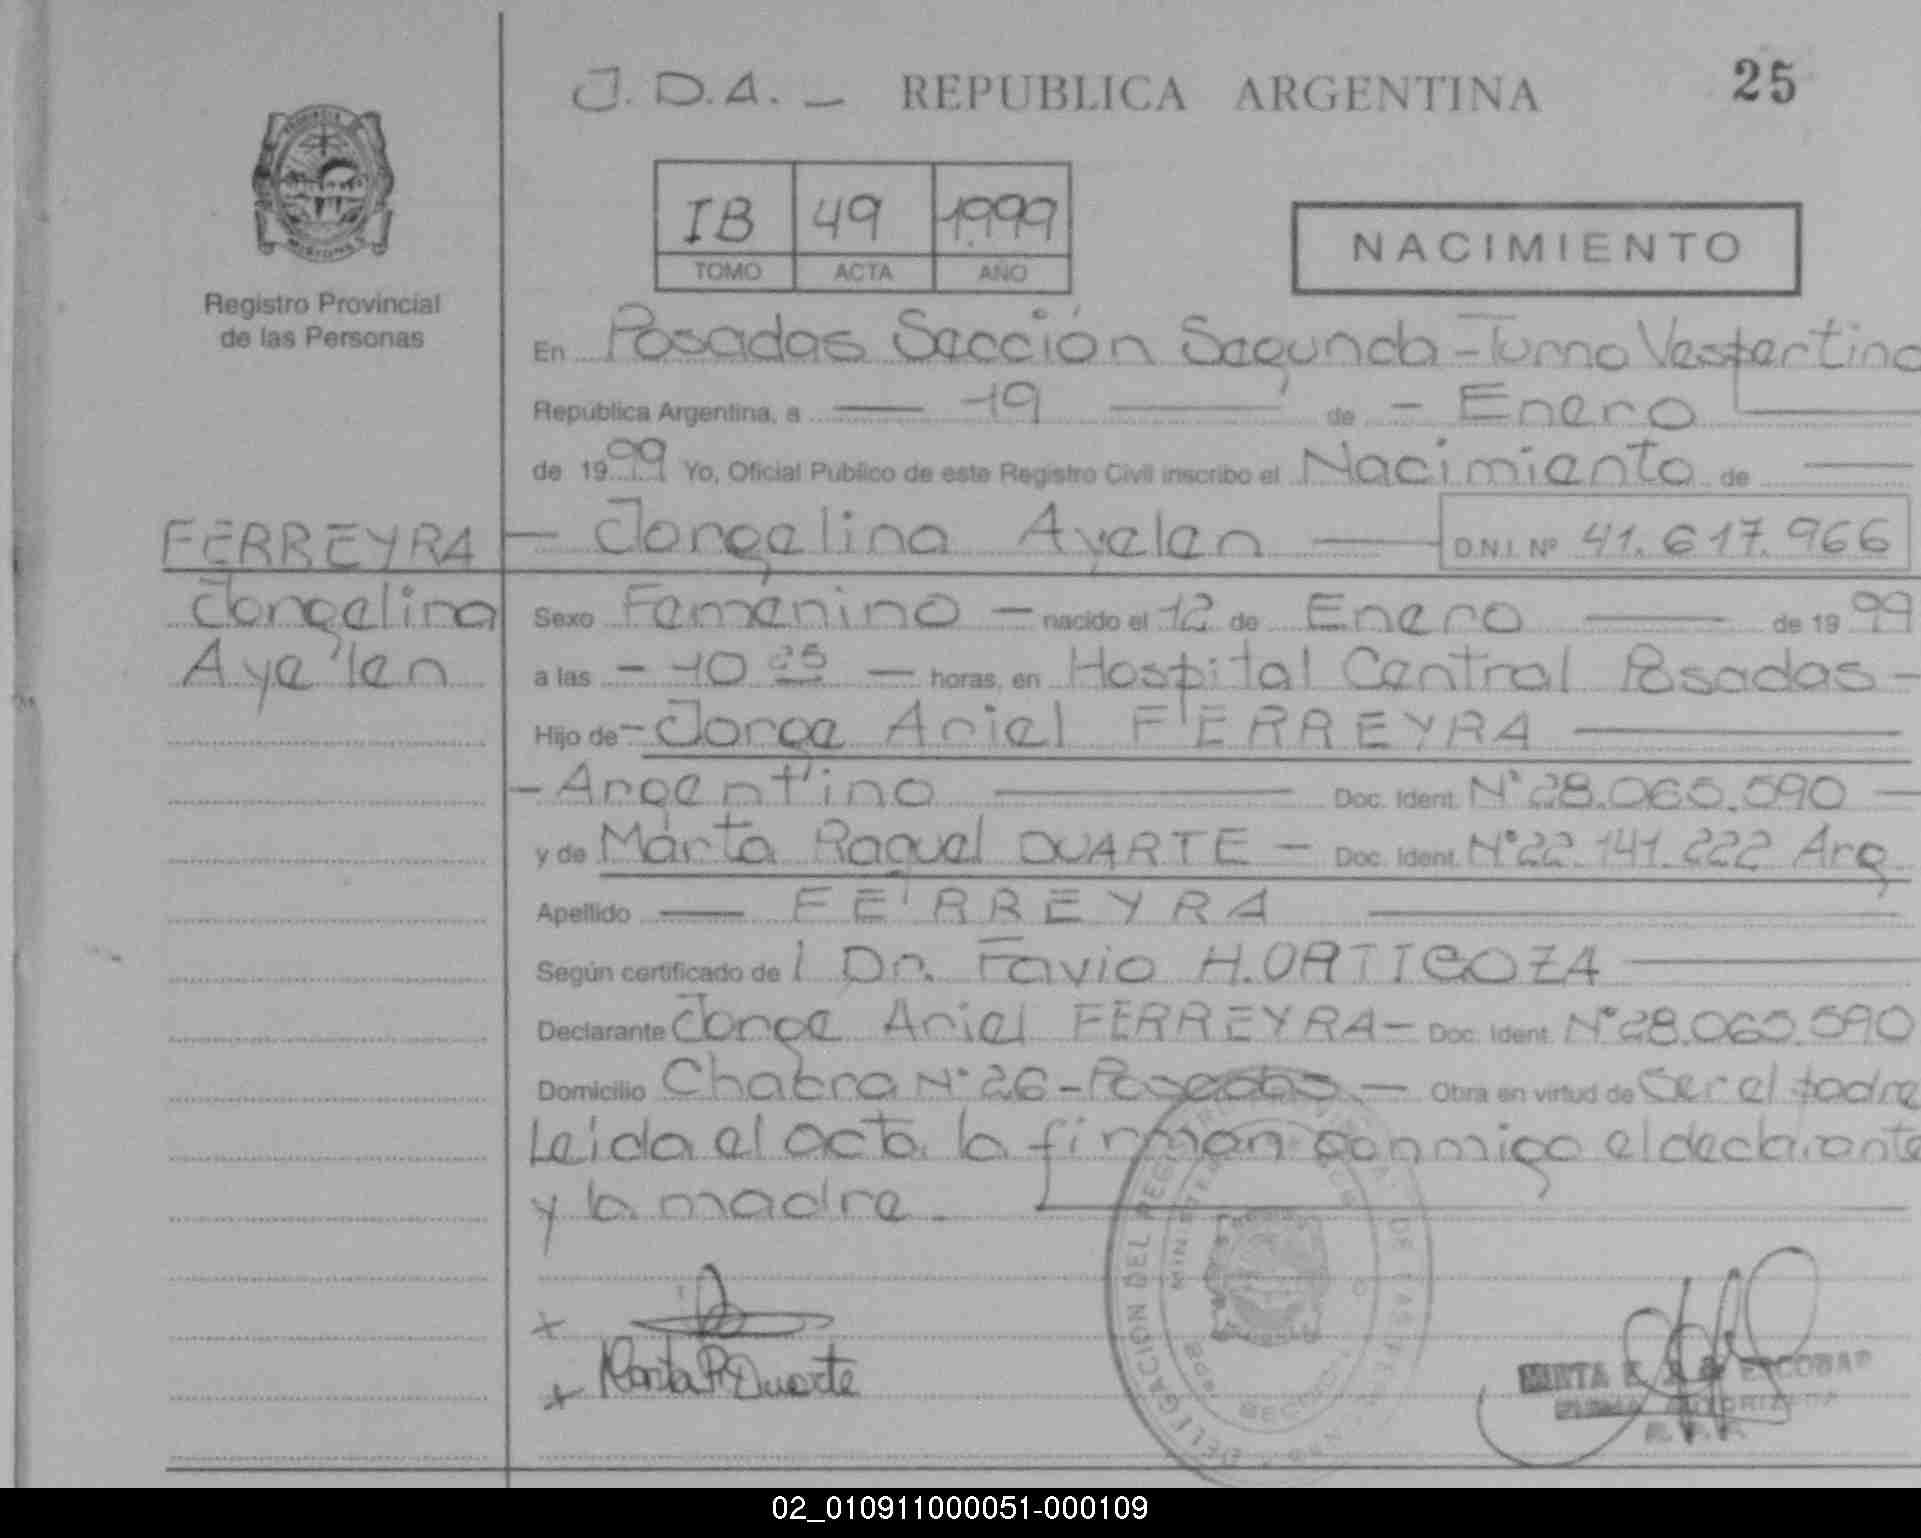 J.D.A. — REPUBLICA ARGENTINA 25
IB 49 1999
TOMO ACTA AÑO
NACIMIENTO
Registro Provincial
de las Personas
En Posadas Sección Segunda - Turno Vespertino
República Argentina, a — 19 — de - Enero
de 1999 Yo, Oficial Publico de este Registro Civil inscribo el Nacimiento de —
FERREYRA — Jorgelina Ayelen — D.N.I. Nº 41.617.966
Jorgelina
Ayelen
Sexo Femenino — nacido el 12 de Enero — de 1999
a las - 10 25 — horas, en Hospital Central Posadas -
Hijo de - Jorge Ariel FERREYRA —
- Argentino — Doc. Ident. N° 28.065.590 —
y de Marta Raquel DUARTE - Doc. Ident. N° 22.141.222 Arg
Apellido — FERREYRA —
Según certificado de l Dr. Favio H. ORTIGOZA —
Declarante Jorge Ariel FERREYRA - Doc. Ident. N° 28.065.590
Domicilio Chacra N° 26 - Posadas. — Obra en virtud de Ser el padre
Leida el acta la firman conmigo el declarante
y la madre.
DELEGACION DEL REGISTRO PROVINCIAL DE LAS PERSONAS
+
+ Marta R Duarte
ESCOBAR
FIRMA AUTORIZADA
02_010911000051-000109